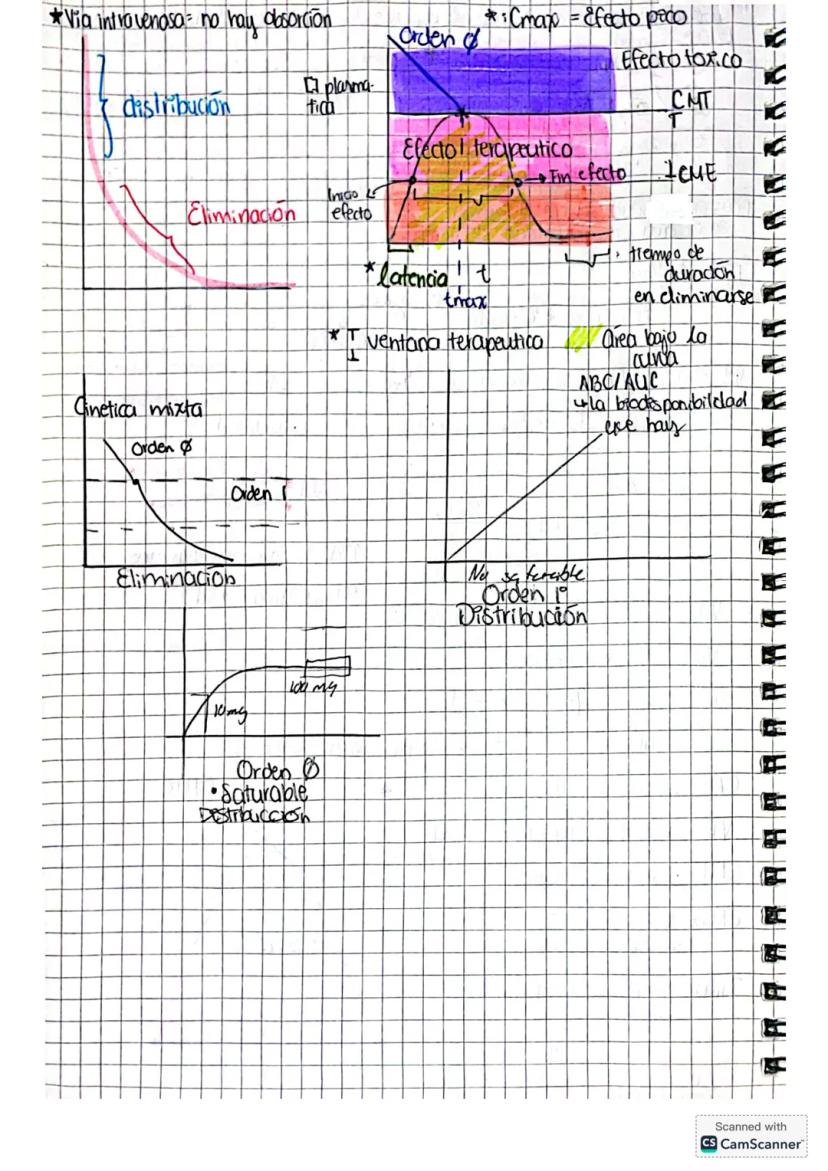 *Via intravenosa = no hay absorción
distribución
Eliminación
*:Cmax = Efecto pico
Orden ø
Efecto toxico
[] plasma-
tica
CMT
T
Efecto terapeutico
Fin efecto
⊥CME
Inicio
efecto
*latencia
t
tmax
tiempo de
duración
en eliminarse
* T ventana terapeutico
⊥
Área bajo la
curva
ABC/AUC
↳la biodisponibilidad
que hay
Cinetica mixta
Orden ø
Orden 1
Eliminación
No saturable
Orden 1º
Distribución
10mg
100 mg
Orden Ø
•Saturable
Distribucción
Scanned with
CS CamScanner